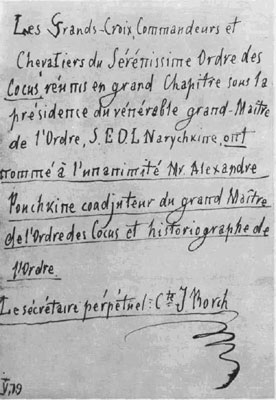 Les Grands-Croix, Commandeurs et
Chevaliers du Sérénissime Ordre des
Cocus, réunis en grand Chapitre sous la
présidence du vénérable grand-Maître
de l'Ordre, S.E.D.L. Narychkine, ont
nommé à l'unanimité Mr. Alexandre
Pouchkine coadjuteur du grand Maître
de l'Ordre des Cocus et historiographe de
l'Ordre.
Le sécrétaire perpétuel: Cte J Borch
V,19